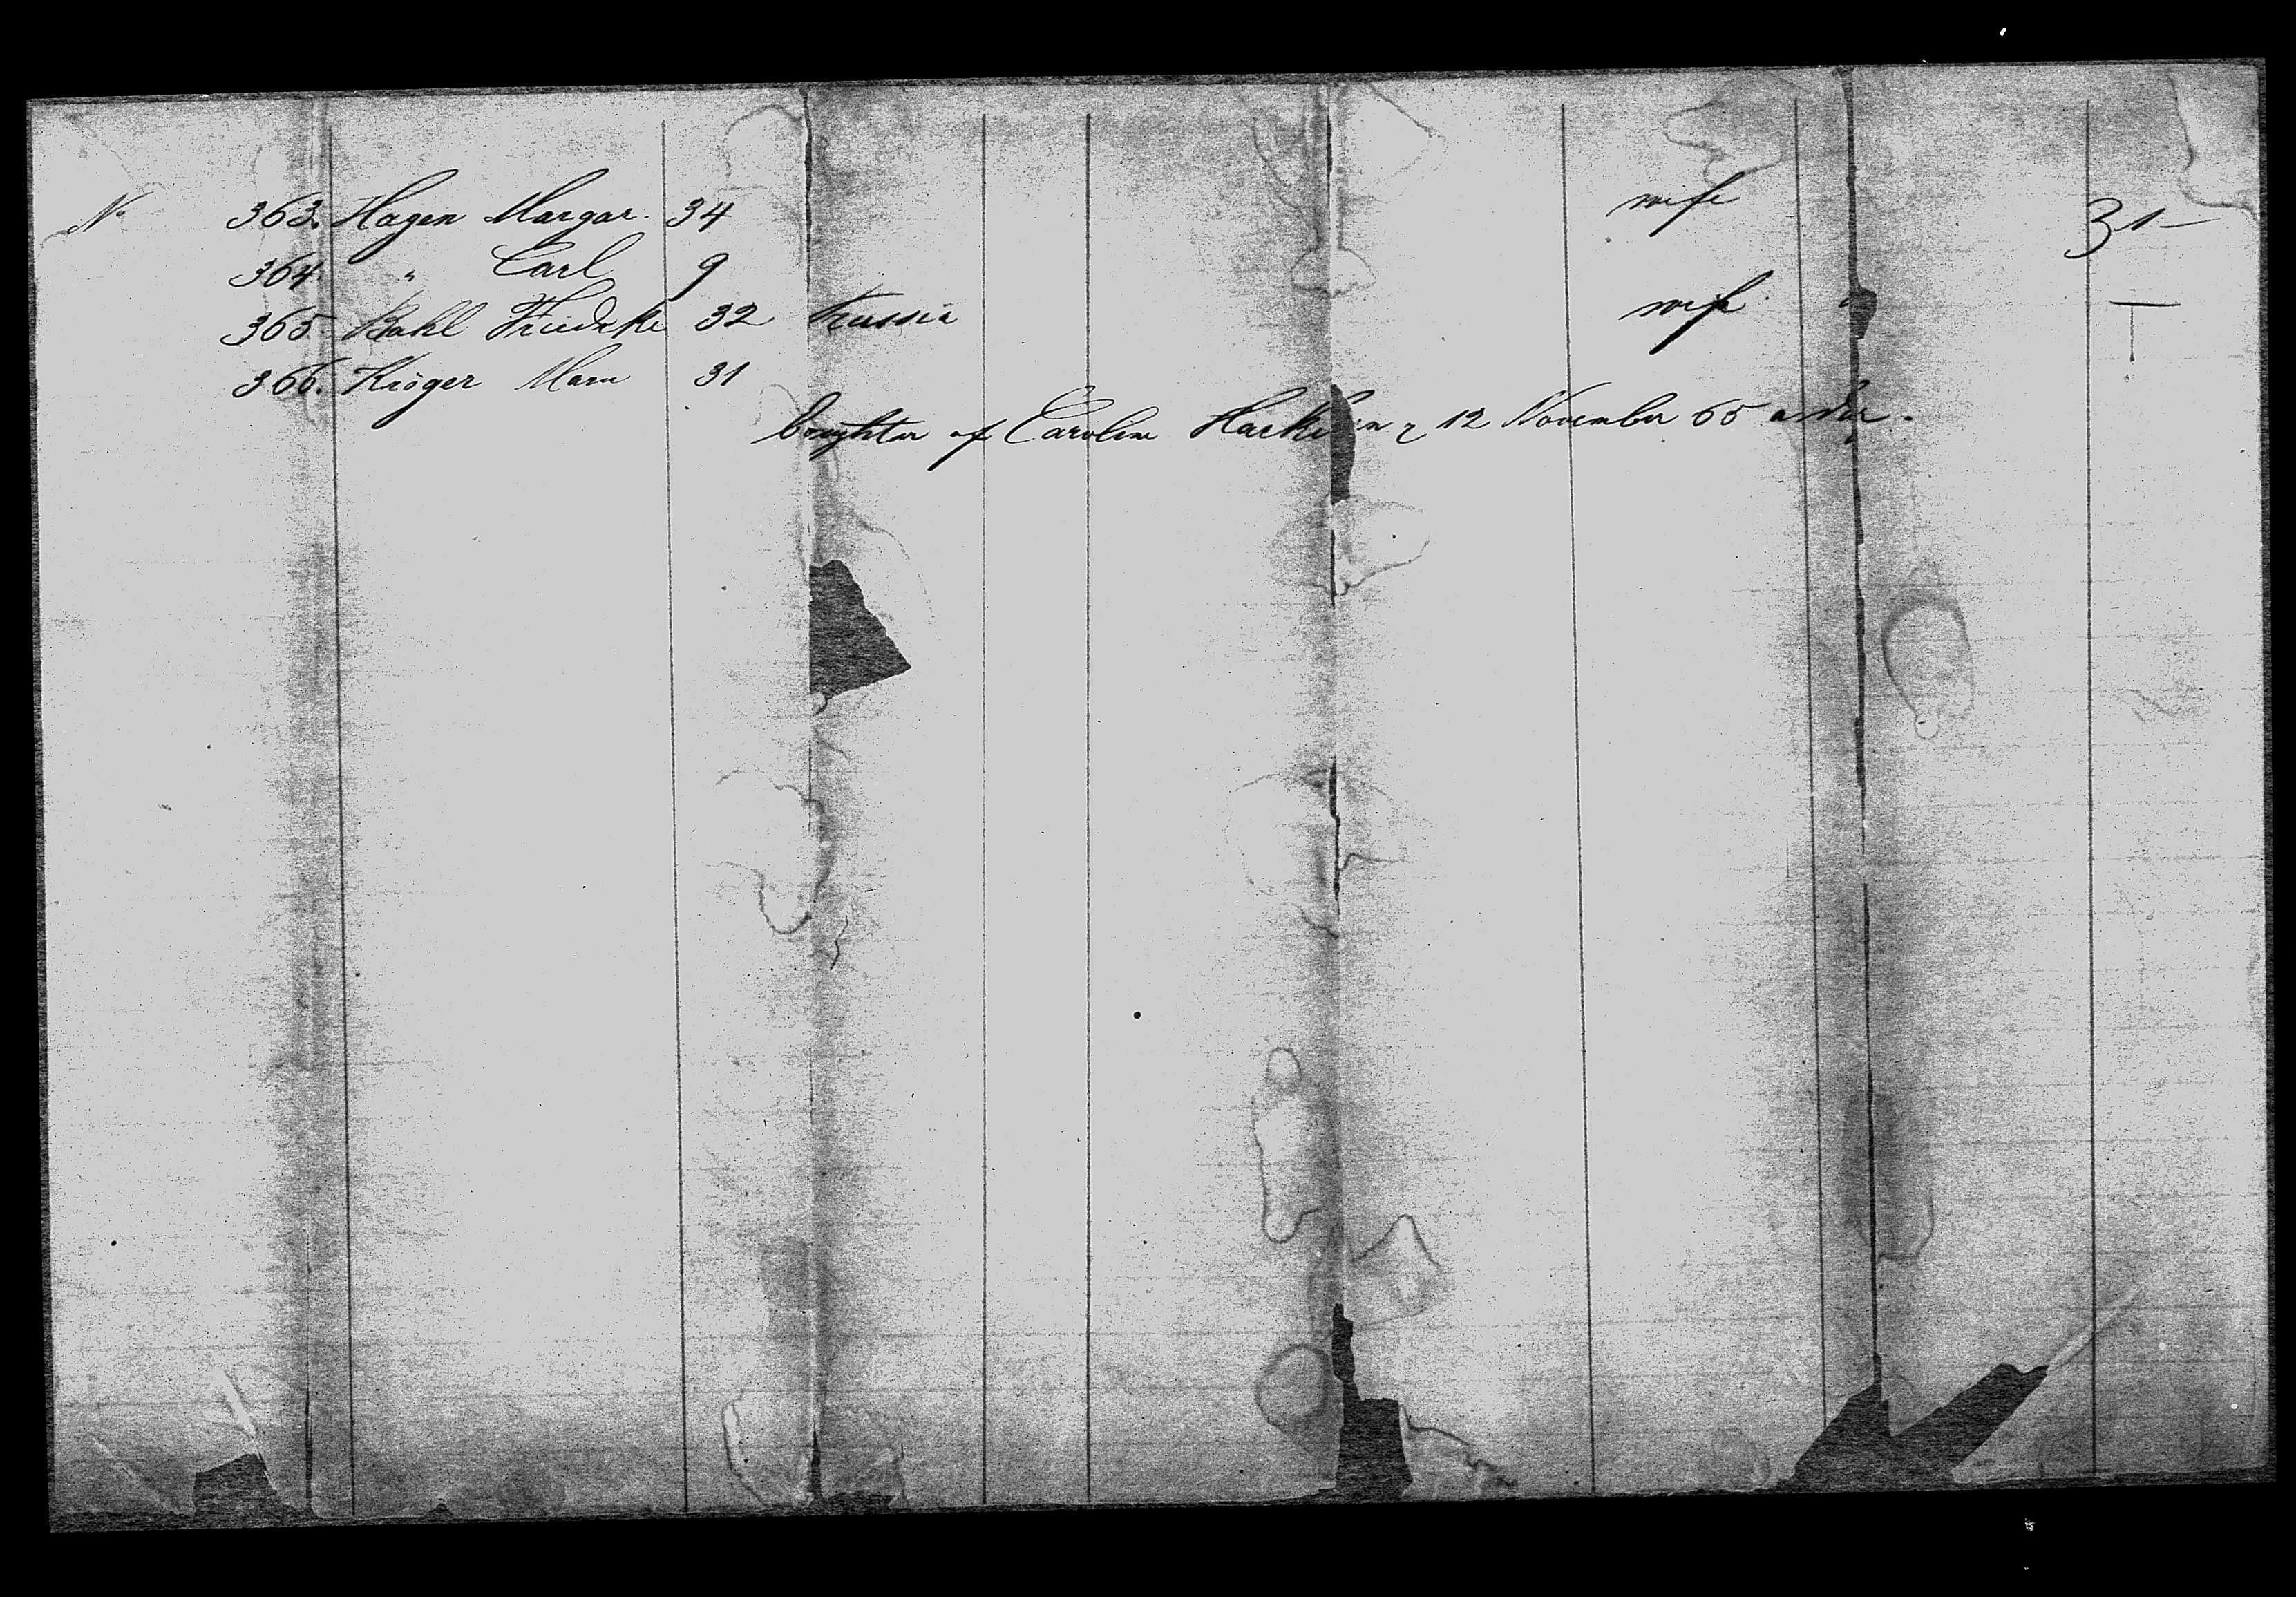 No 363. Hagen Margar. 34 wife 31-
364. " Carl 9
365. Bahl Friedrke 32 Prussia wife
366. Kröger Mara 31
of Caroline 12 November 65